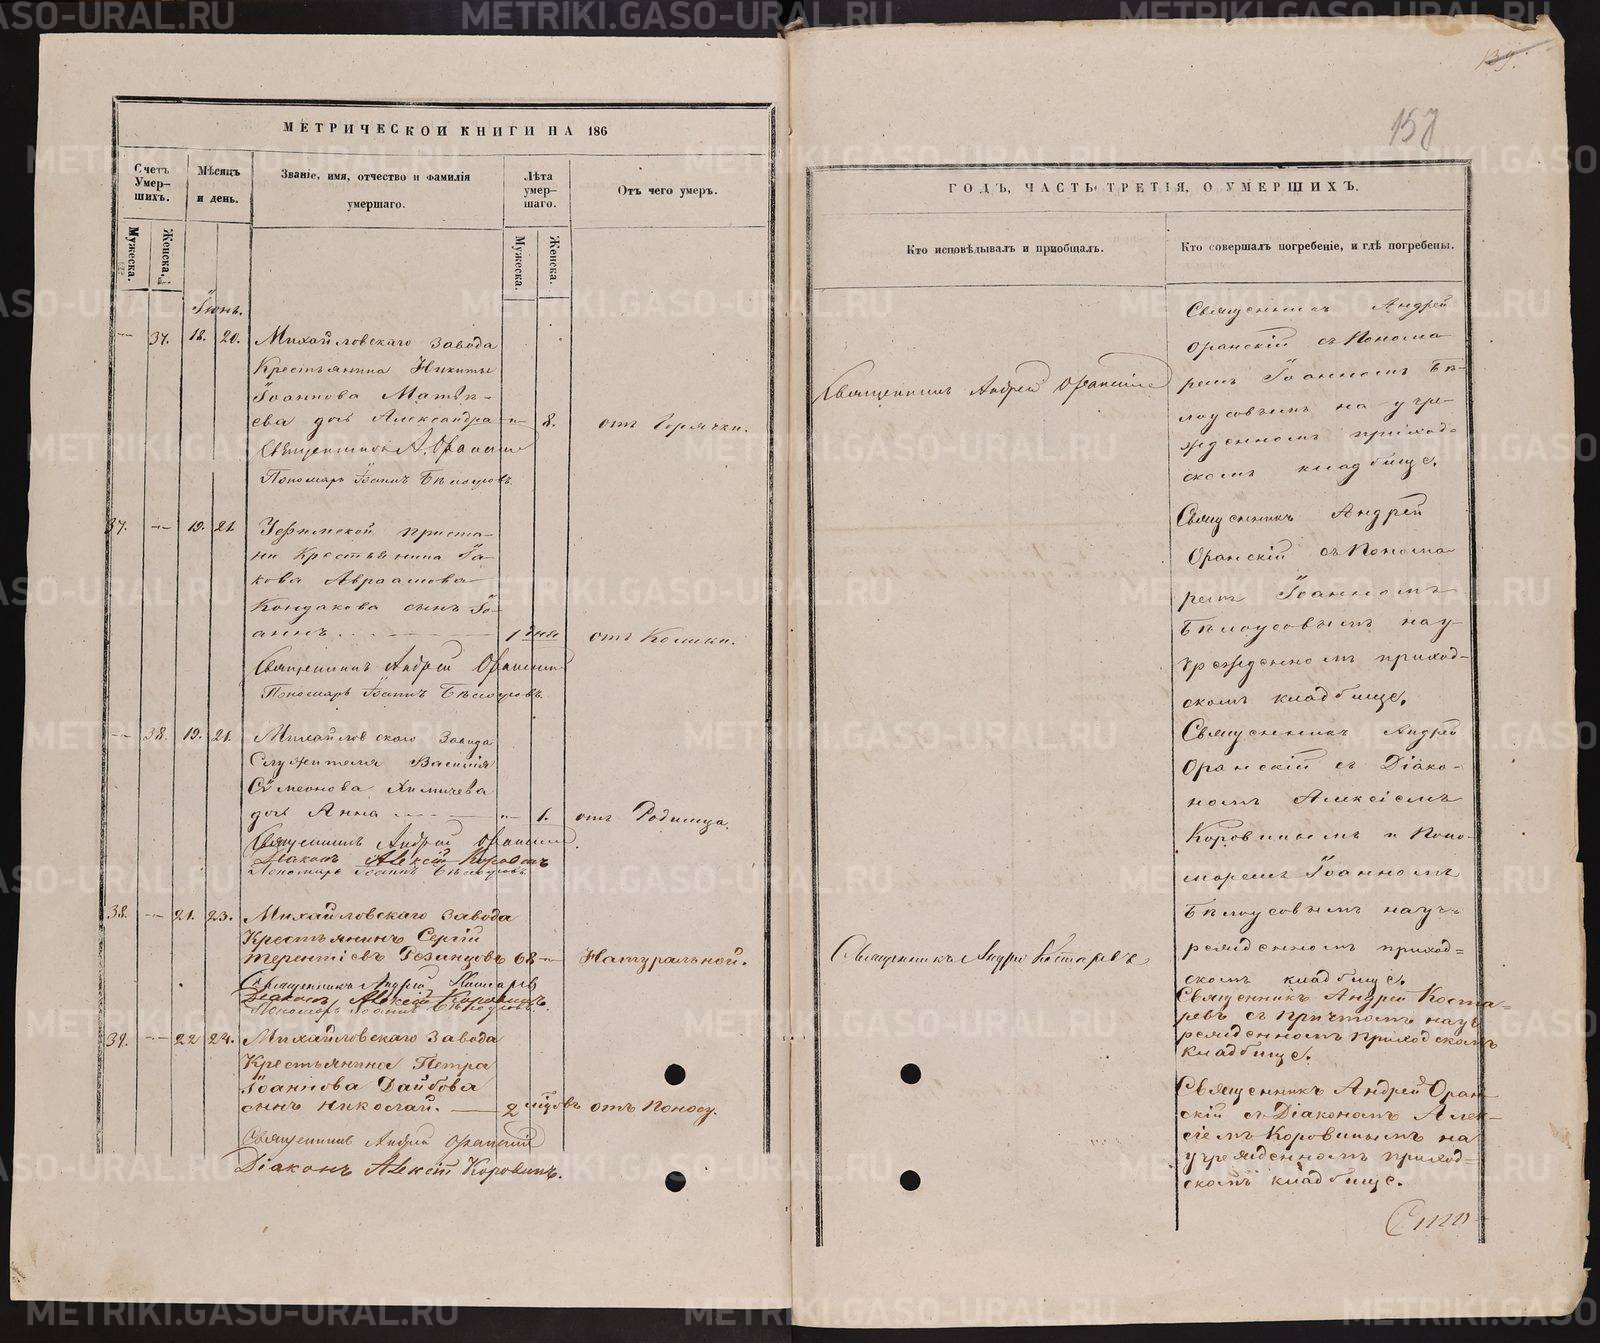 139.
157
МЕТРИЧЕСКОЙ КНИГИ НА 186
Счетъ Умер-шихъ.
Мѣсяцъ и день.
Званіе, имя, отчество и фамилія умершаго.
Лѣта умер-шаго.
Отъ чего умеръ.
Мужеска.
Женска.
Мужеска.
Женска.
Іюнь.
— 37. 18. 20. Михайловскаго завода
Крестьянина Никиты
Іоаннова Матвѣ-
ева дочь Александра — 8. отъ Горячки.
Священникъ А. Оранский
Пономарь Іоаннъ Бѣлоусовъ.
37. — 19. 21. Уфимской приста-
ни Крестьянина Іа-
кова Авраамова
Кондакова сынъ Іо-
аннъ. 1 дня отъ Колики.
Священникъ Андрей Оранский
Пономарь Іоаннъ Бѣлоусовъ.
— 38. 19. 21. Михайловскаго завода
Служителя Василія
Сѵмеонова Химичева
дочь Анна — 1. отъ Родимца.
Священникъ Андрей Оранский.
Діаконъ Алексій Коровинъ
Пономарь Іоаннъ Бѣлоусовъ.
38. — 21. 23. Михайловскаго завода
Крестьянинъ Сергій
Терентіевъ 68 — Натуральной.
Священникъ Андрей Костаревъ
Діаконъ Алексій Коровинъ
Пономарь Іоаннъ Бѣлоусовъ.
39. — 22 24. Михайловскаго завода
Крестьянина Петра
Іоаннова Дайбова
сынъ Николай. — 2 отъ Поносу.
Священникъ Андрей Оранский
Діаконъ Алексій Коровинъ.
ГОДЪ, ЧАСТЬ ТРЕТІЯ, О УМЕРШИХЪ.
Кто исповѣдывалъ и приобщалъ.
Кто совершалъ погребеніе, и гдѣ погребены.
Священникъ Андрей Оранский
Священникъ Андрей Костаревъ
Священникъ Андрей
Оранскій съ Понома
ремъ Іоанномъ Бѣ-
лоусовымъ на учре-
жденномъ приход-
скомъ кладбище.
Священникъ Андрей
Оранскій съ Понома
ремъ Іоанномъ
Бѣлоусовымъ на у-
чрежденномъ приход-
скомъ кладбище.
Священникъ Андрей
Оранскій съ Діако-
номъ Алексіемъ
Коровинымъ и Поно-
маремъ Іоанномъ
Бѣлоусовымъ на уч-
режденномъ приход-
скомъ кладбище.
Священникъ Андрей Коста-
ревъ съ причтомъ на уч
режденномъ приходскомъ
кладбище.
Священникъ Андрей Оран-
скій съ Діакономъ Алек-
сіемъ Коровинымъ на
учрежденномъ приход-
скомъ кладбище.
METRIKI.GASO-URAL.RU